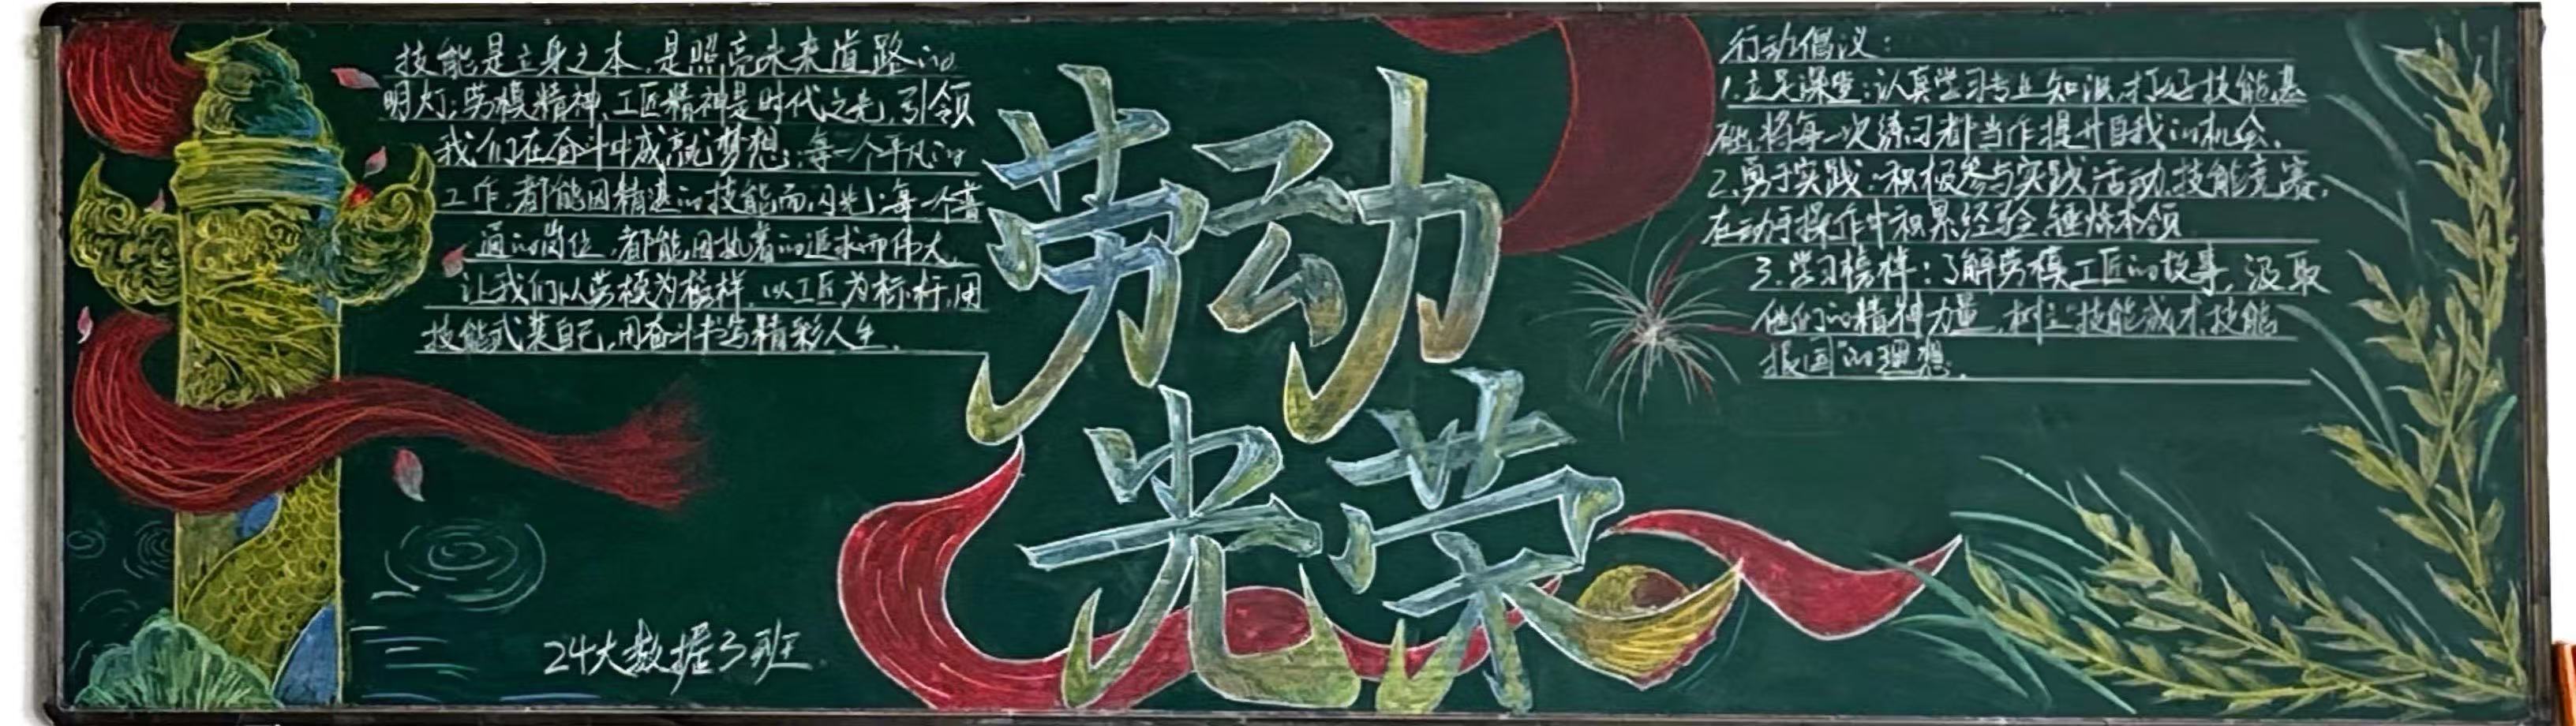 技能是立身之本,是照亮未来道路的
明灯;劳模精神、工匠精神是时代之光,引领
我们在奋斗中成就梦想;每一个平凡的
工作,都能因精湛的技能而闪光;每一个普
通的岗位,都能因执着的追求而伟大。
让我们以劳模为榜样,以工匠为标杆,用
技能武装自己,用奋斗书写精彩人生。
24大数据3班
劳动
光荣
行动倡议:
1.立足课堂:认真学习专业知识,打好技能基
础,将每一次练习都当作提升自我的机会。
2.勇于实践:积极参与实践活动、技能竞赛,
在动手操作中积累经验、锤炼本领
3.学习榜样:了解劳模工匠的故事,汲取
他们的精神力量,树立技能成才、技能
报国的理想。